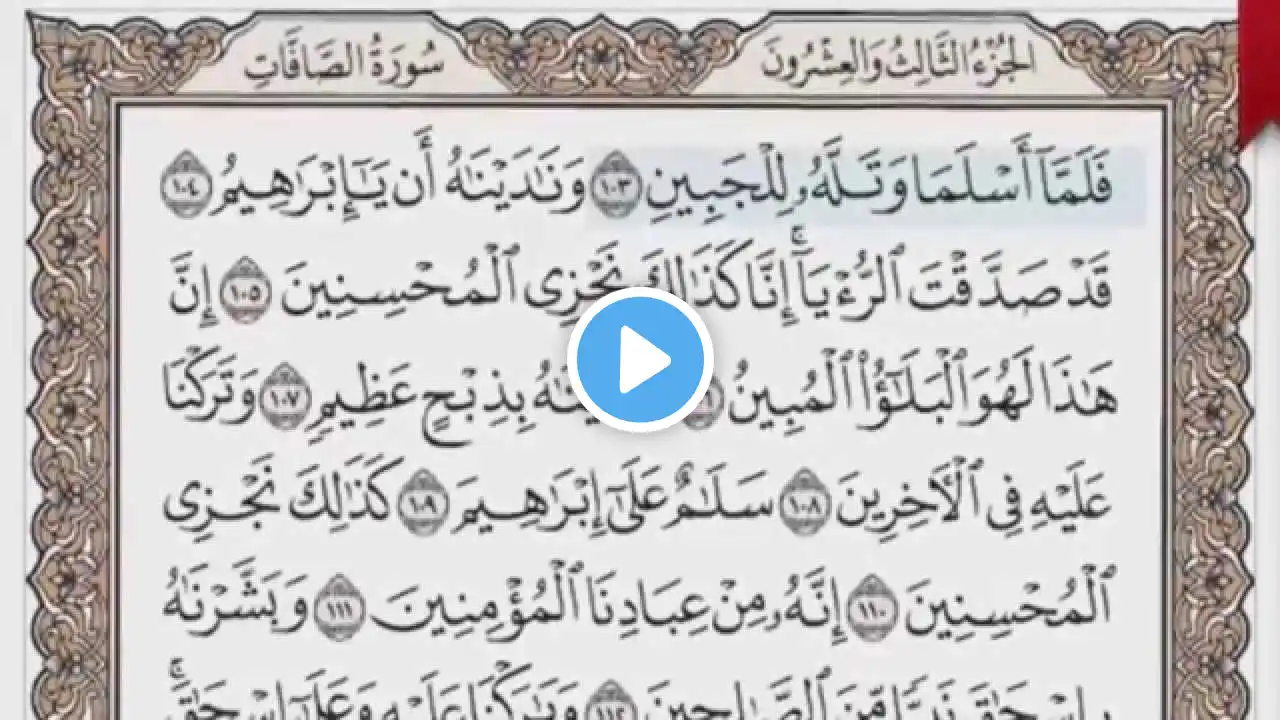 الجُزْءُ الثَّالِثُ وَالعِشْرُونَ
سُورَةُ الصَّافَّاتِ
فَلَمَّآ أَسْلَمَا وَتَلَّهُۥ لِلْجَبِينِ ١٠٣ وَنَٰدَيْنَٰهُ أَن يَٰٓإِبْرَٰهِيمُ ١٠٤
قَدْ صَدَّقْتَ ٱلرُّءْيَآ ۚ إِنَّا كَذَٰلِكَ نَجْزِى ٱلْمُحْسِنِينَ ١٠٥ إِنَّ
هَٰذَا لَهُوَ ٱلْبَلَٰٓؤُا۟ ٱلْمُبِينُ بِذِبْحٍ عَظِيمٍ ١٠٧ وَتَرَكْنَا
عَلَيْهِ فِى ٱلْءَاخِرِينَ ١٠٨ سَلَٰمٌ عَلَىٰٓ إِبْرَٰهِيمَ ١٠٩ كَذَٰلِكَ نَجْزِى
ٱلْمُحْسِنِينَ ١١٠ إِنَّهُۥ مِنْ عِبَادِنَا ٱلْمُؤْمِنِينَ ١١١ وَبَشَّرْنَٰهُ
بِإِسْحَٰقَ نَبِيًّا مِّنَ ٱلصَّٰلِحِينَ ١١٢ وَبَٰرَكْنَا عَلَيْهِ وَعَلَىٰٓ إِسْحَٰقَ ۚ